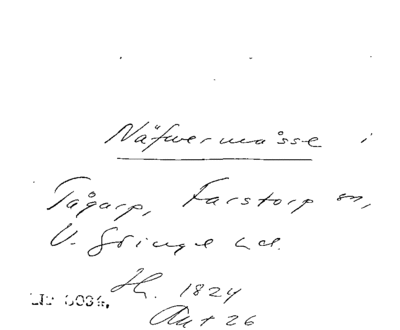 Näfwermåsse i
Tågarp, Farstorp sn,
V. Göinge hd.
Jh. 1824
Akt 26